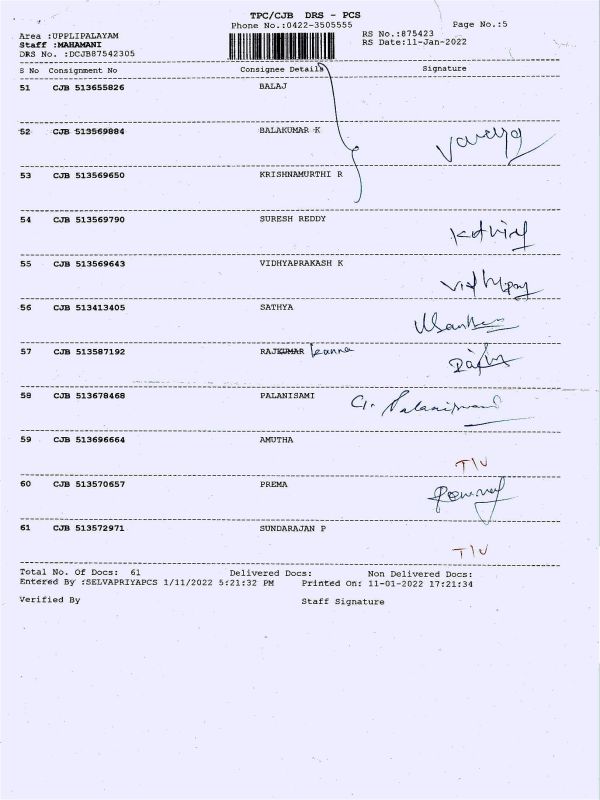 TPC/CJB DRS - PCS
Phone No.:0422-3505555
Page No.:5
Area :UPPLIPALAYAM
RS No.:875423
Staff :MAHAMANI
RS Date:11-Jan-2022
DRS No. :DCJB87542305
S No Consignment No Consignee Details Signature
51 CJB 513655826 BALAJ
52 CJB 513569884 BALAKUMAR K
53 CJB 513569650 KRISHNAMURTHI R
54 CJB 513569790 SURESH REDDY
55 CJB 513569643 VIDHYAPRAKASH K
56 CJB 513413405 SATHYA
57 CJB 513587192 RAJKUMAR
58 CJB 513678468 PALANISAMI
59 CJB 513696664 AMUTHA
T/V
60 CJB 513570657 PREMA
61 CJB 513572971 SUNDARAJAN P
T/V
Total No. Of Docs: 61 Delivered Docs: Non Delivered Docs:
Entered By :SELVAPRIYAPCS 1/11/2022 5:21:32 PM Printed On: 11-01-2022 17:21:34
Verified By Staff Signature